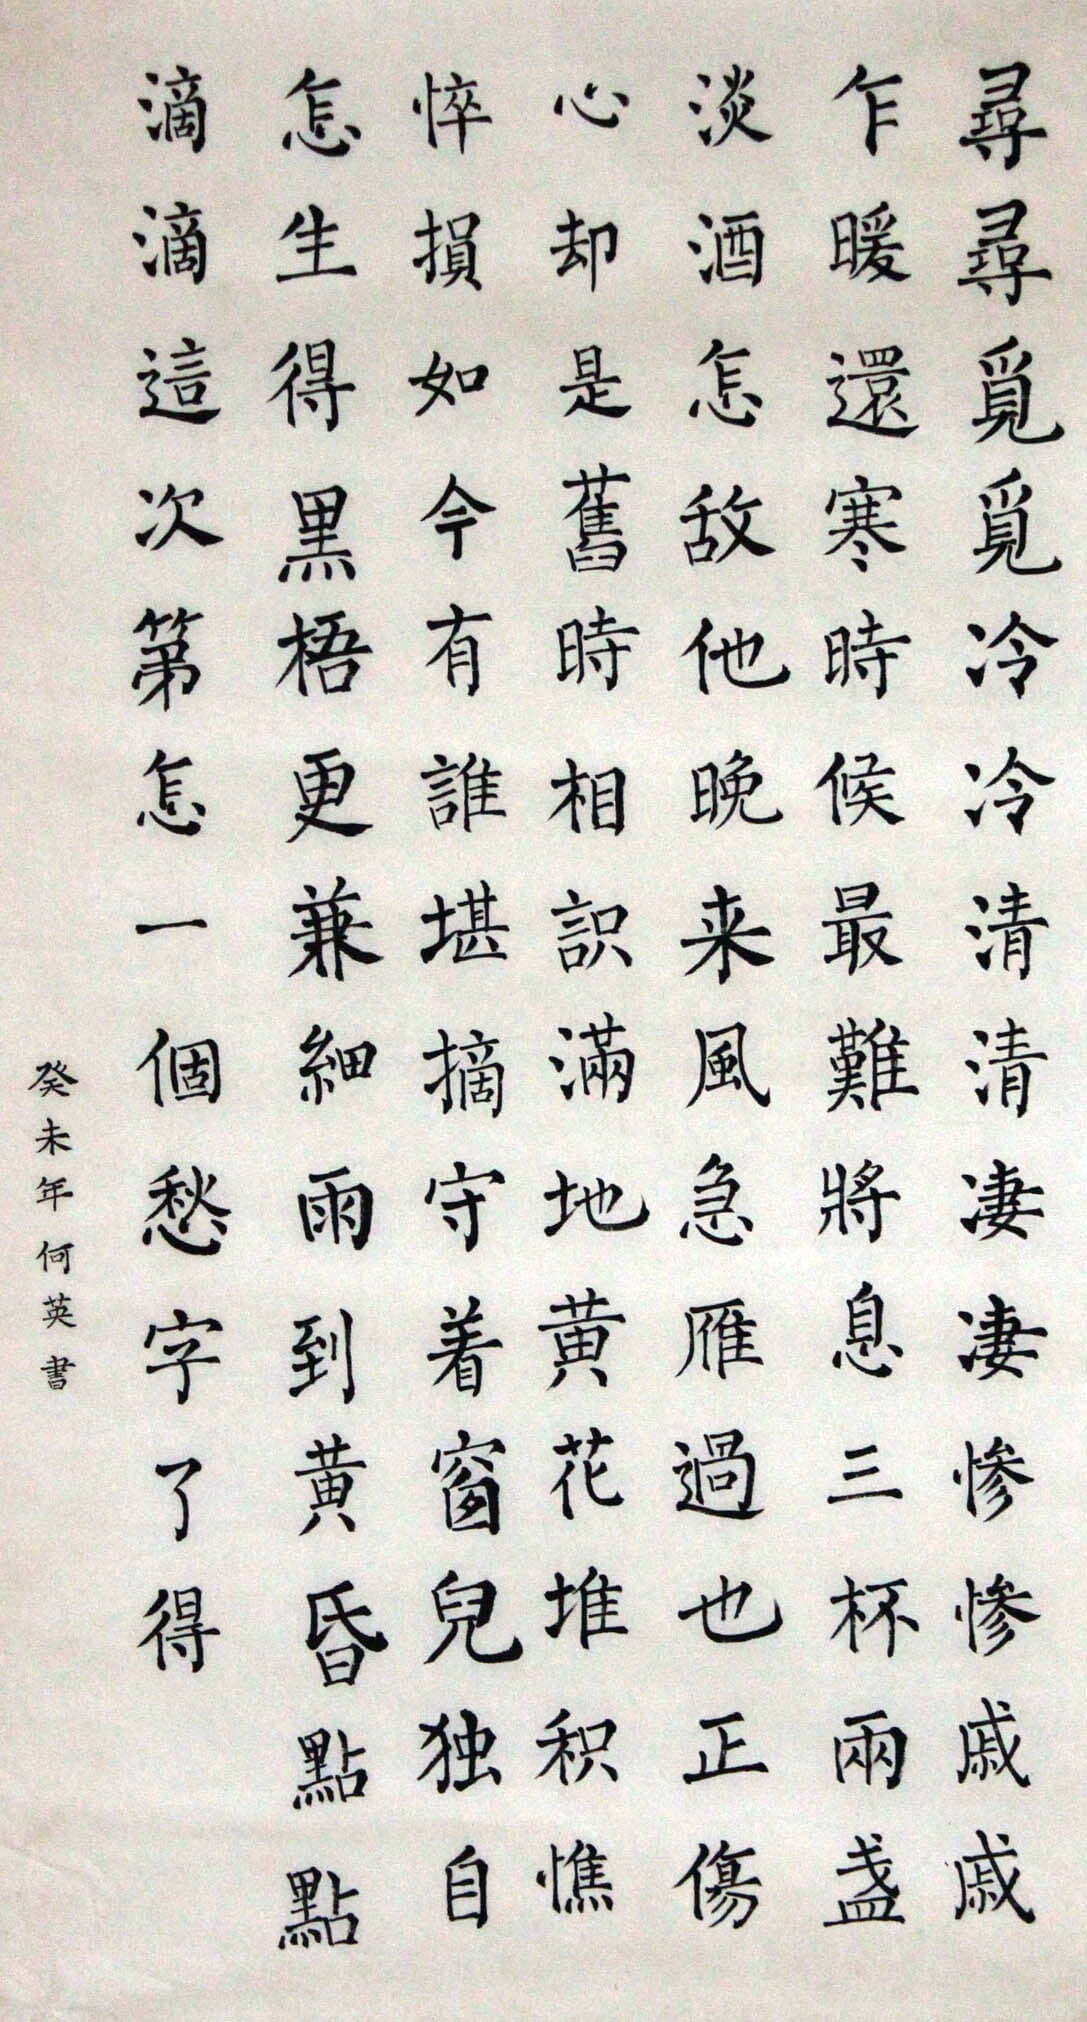 尋尋覓覓冷冷清清凄凄惨惨戚戚
乍暖還寒時候最難將息三杯兩盏
淡酒怎敌他晚来風急雁過也正傷
心却是舊時相識滿地黄花堆积憔
悴損如今有誰堪摘守着窗兒独自
怎生得黑梧更兼細雨到黄昏點點
滴滴這次第怎一個愁字了得
癸未年何英書